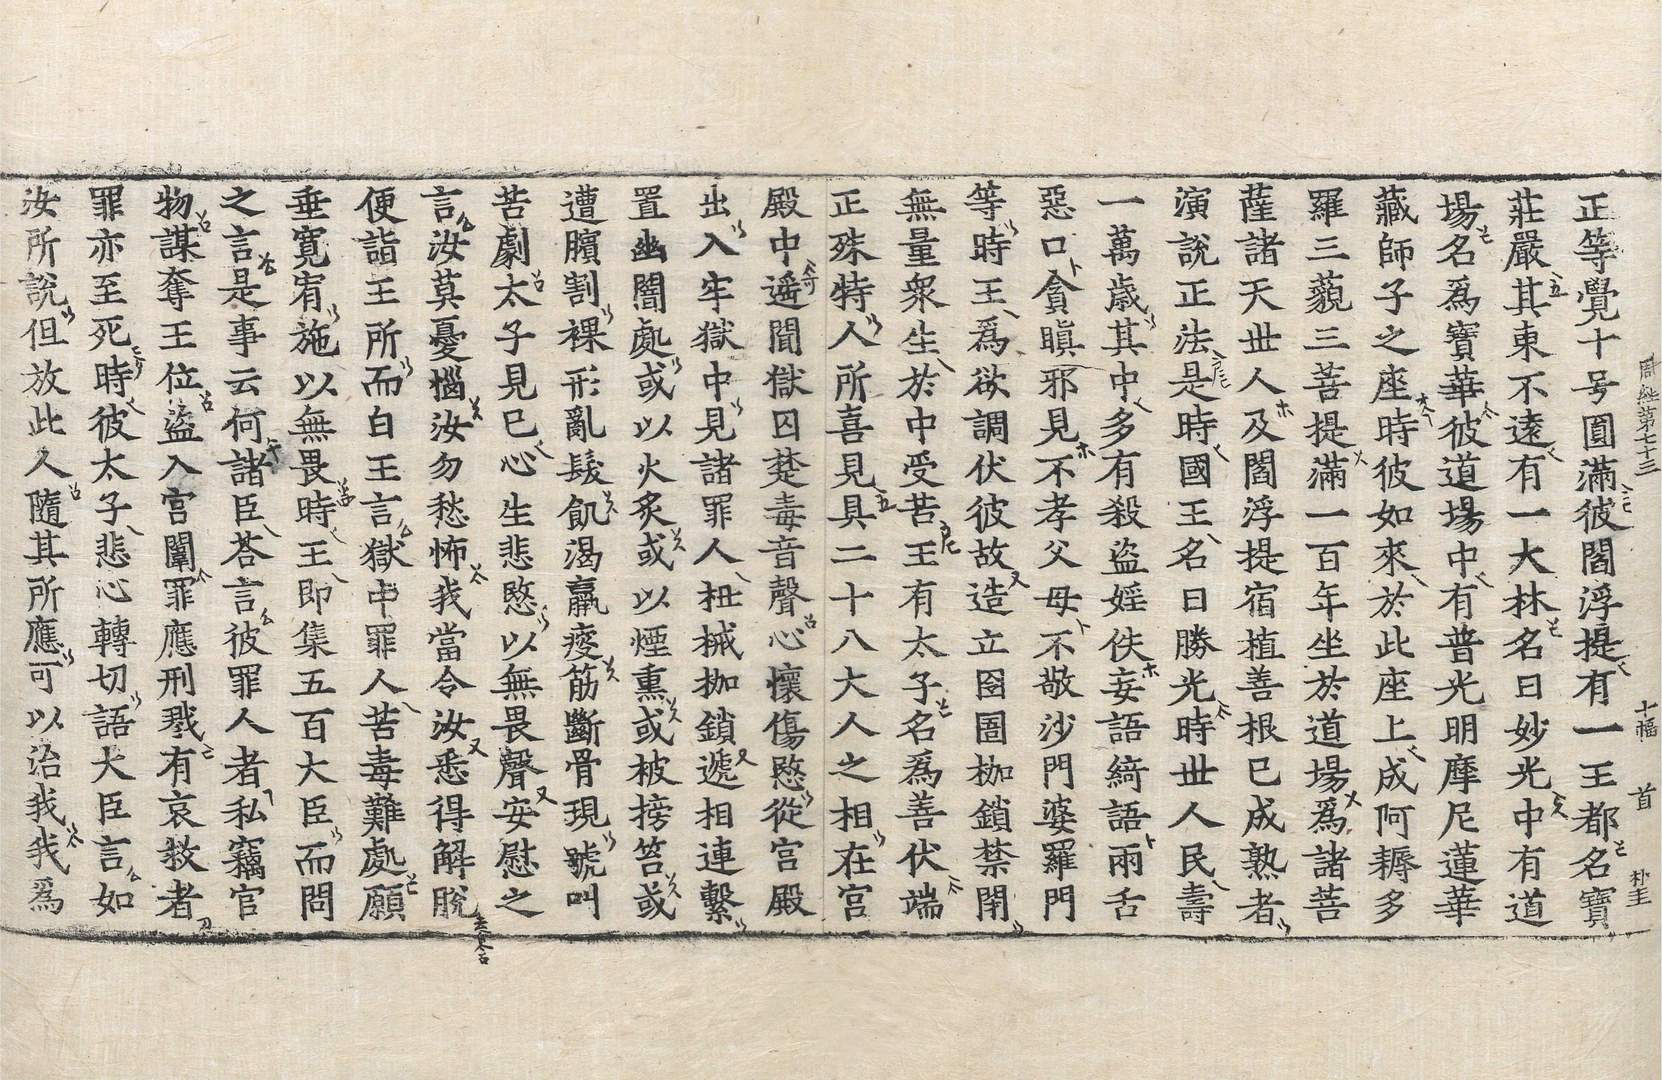 周經第七十三
十幅
首
朴圭
正等覺十号圓滿彼閻浮提有一王都名寶
莊嚴其東不遠有一大林名曰妙光中有道
場名爲寶華彼道場中有普光明摩尼蓮華
藏師子之座時彼如來於此座上成阿耨多
羅三藐三菩提滿一百年坐於道場爲諸菩
薩諸天世人及閻浮提宿植善根已成熟者
演說正法是時國王名曰勝光時世人民壽
一萬歲其中多有殺盜婬佚妄語綺語兩舌
惡口貪瞋邪見不孝父母不敬沙門婆羅門
等時王爲欲調伏彼故造立囹圄枷鎖禁閉
無量衆生於中受苦王有太子名爲善伏端
正殊特人所喜見具二十八大人之相在宮
殿中遥聞獄囚楚毒音聲心懷傷愍從宮殿
出入牢獄中見諸罪人杻械枷鎖遞相連繫
置幽闇處或以火炙或以煙熏或被搒笞或
遭臏割裸形亂髮飢渴羸瘦筋斷骨現號叫
苦劇太子見已心生悲愍以無畏聲安慰之
言汝莫憂惱汝勿愁怖我當令汝悉得解脫
便詣王所而白王言獄中罪人苦毒難處願
垂寛宥施以無畏時王即集五百大臣而問
之言是事云何諸臣荅言彼罪人者私竊官
物謀奪王位盜入宮闈罪應刑戮有哀救者
罪亦至死時彼太子悲心轉切語大臣言如
汝所說但放此人隨其所應可以治我我爲